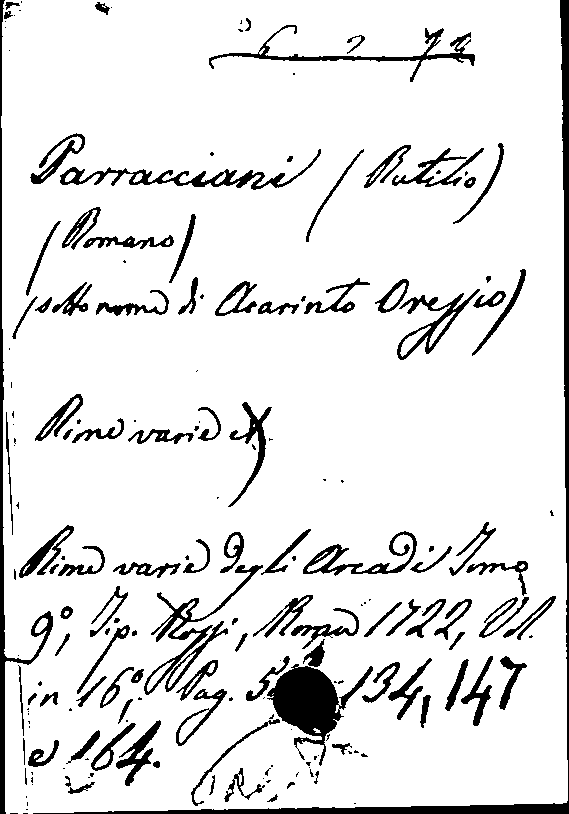 6 2 72
Parracciani (Rutilio)
(Romano)
(sotto nome di Acarinto Oressio)
Rime varie
Rime varie degli Arcadi Tomo
9°, Tip. Rossi, Roma 1722, Vol.
in 16°, Pag. 134, 147
e 164.